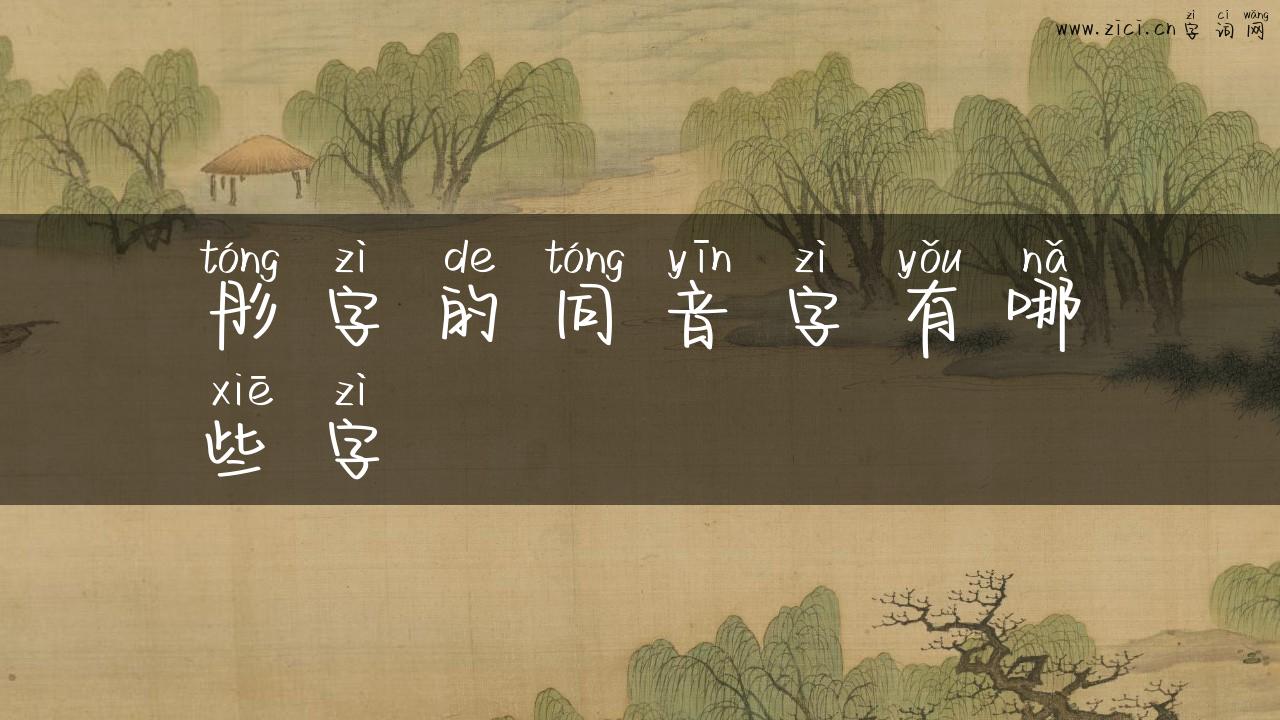 zì cí wǎng
www.zici.cn 字词网
tóng zì de tóng yīn zì yǒu nǎ
彤字的同音字有哪
xiē zì
些字